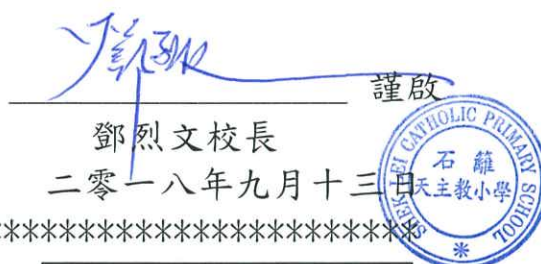 謹啟
鄧烈文校長
二零一八年九月十三日
SHEK LEI CATHOLIC PRIMARY SCHOOL
石籬
天主教小學
*
************************